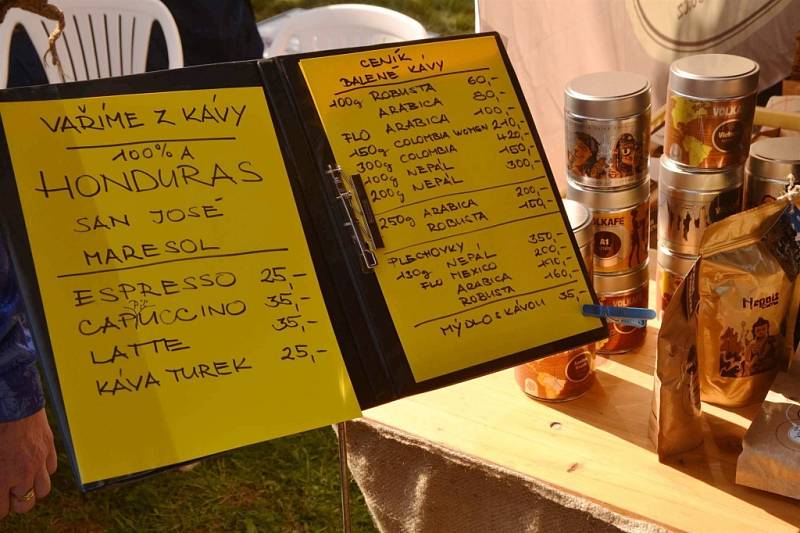 VAŘÍME Z KÁVY
100% A
HONDURAS
SAN JOSÉ
MARESOL
ESPRESSO 25,-
CAPUCCINO 35,-
LATTE 35,-
KÁVA TUREK 25,-
CENÍK
BALENÉ KÁVY
100g ROBUSTA 60,-
ARABICA 80,-
FLO ARABICA 100,-
150g COLOMBIA WOMEN 210,-
300g COLOMBIA 420,-
100g NEPÁL 150,-
200g NEPÁL 300,-
250g ARABICA 200,-
ROBUSTA 150,-
PLECHOVKY
130g NEPAL 350,-
FLO MEXICO 200,-
ARABICA
ROBUSTA 160,-
MÝDLO S KÁVOU 35,-
VOLKAFE
A1